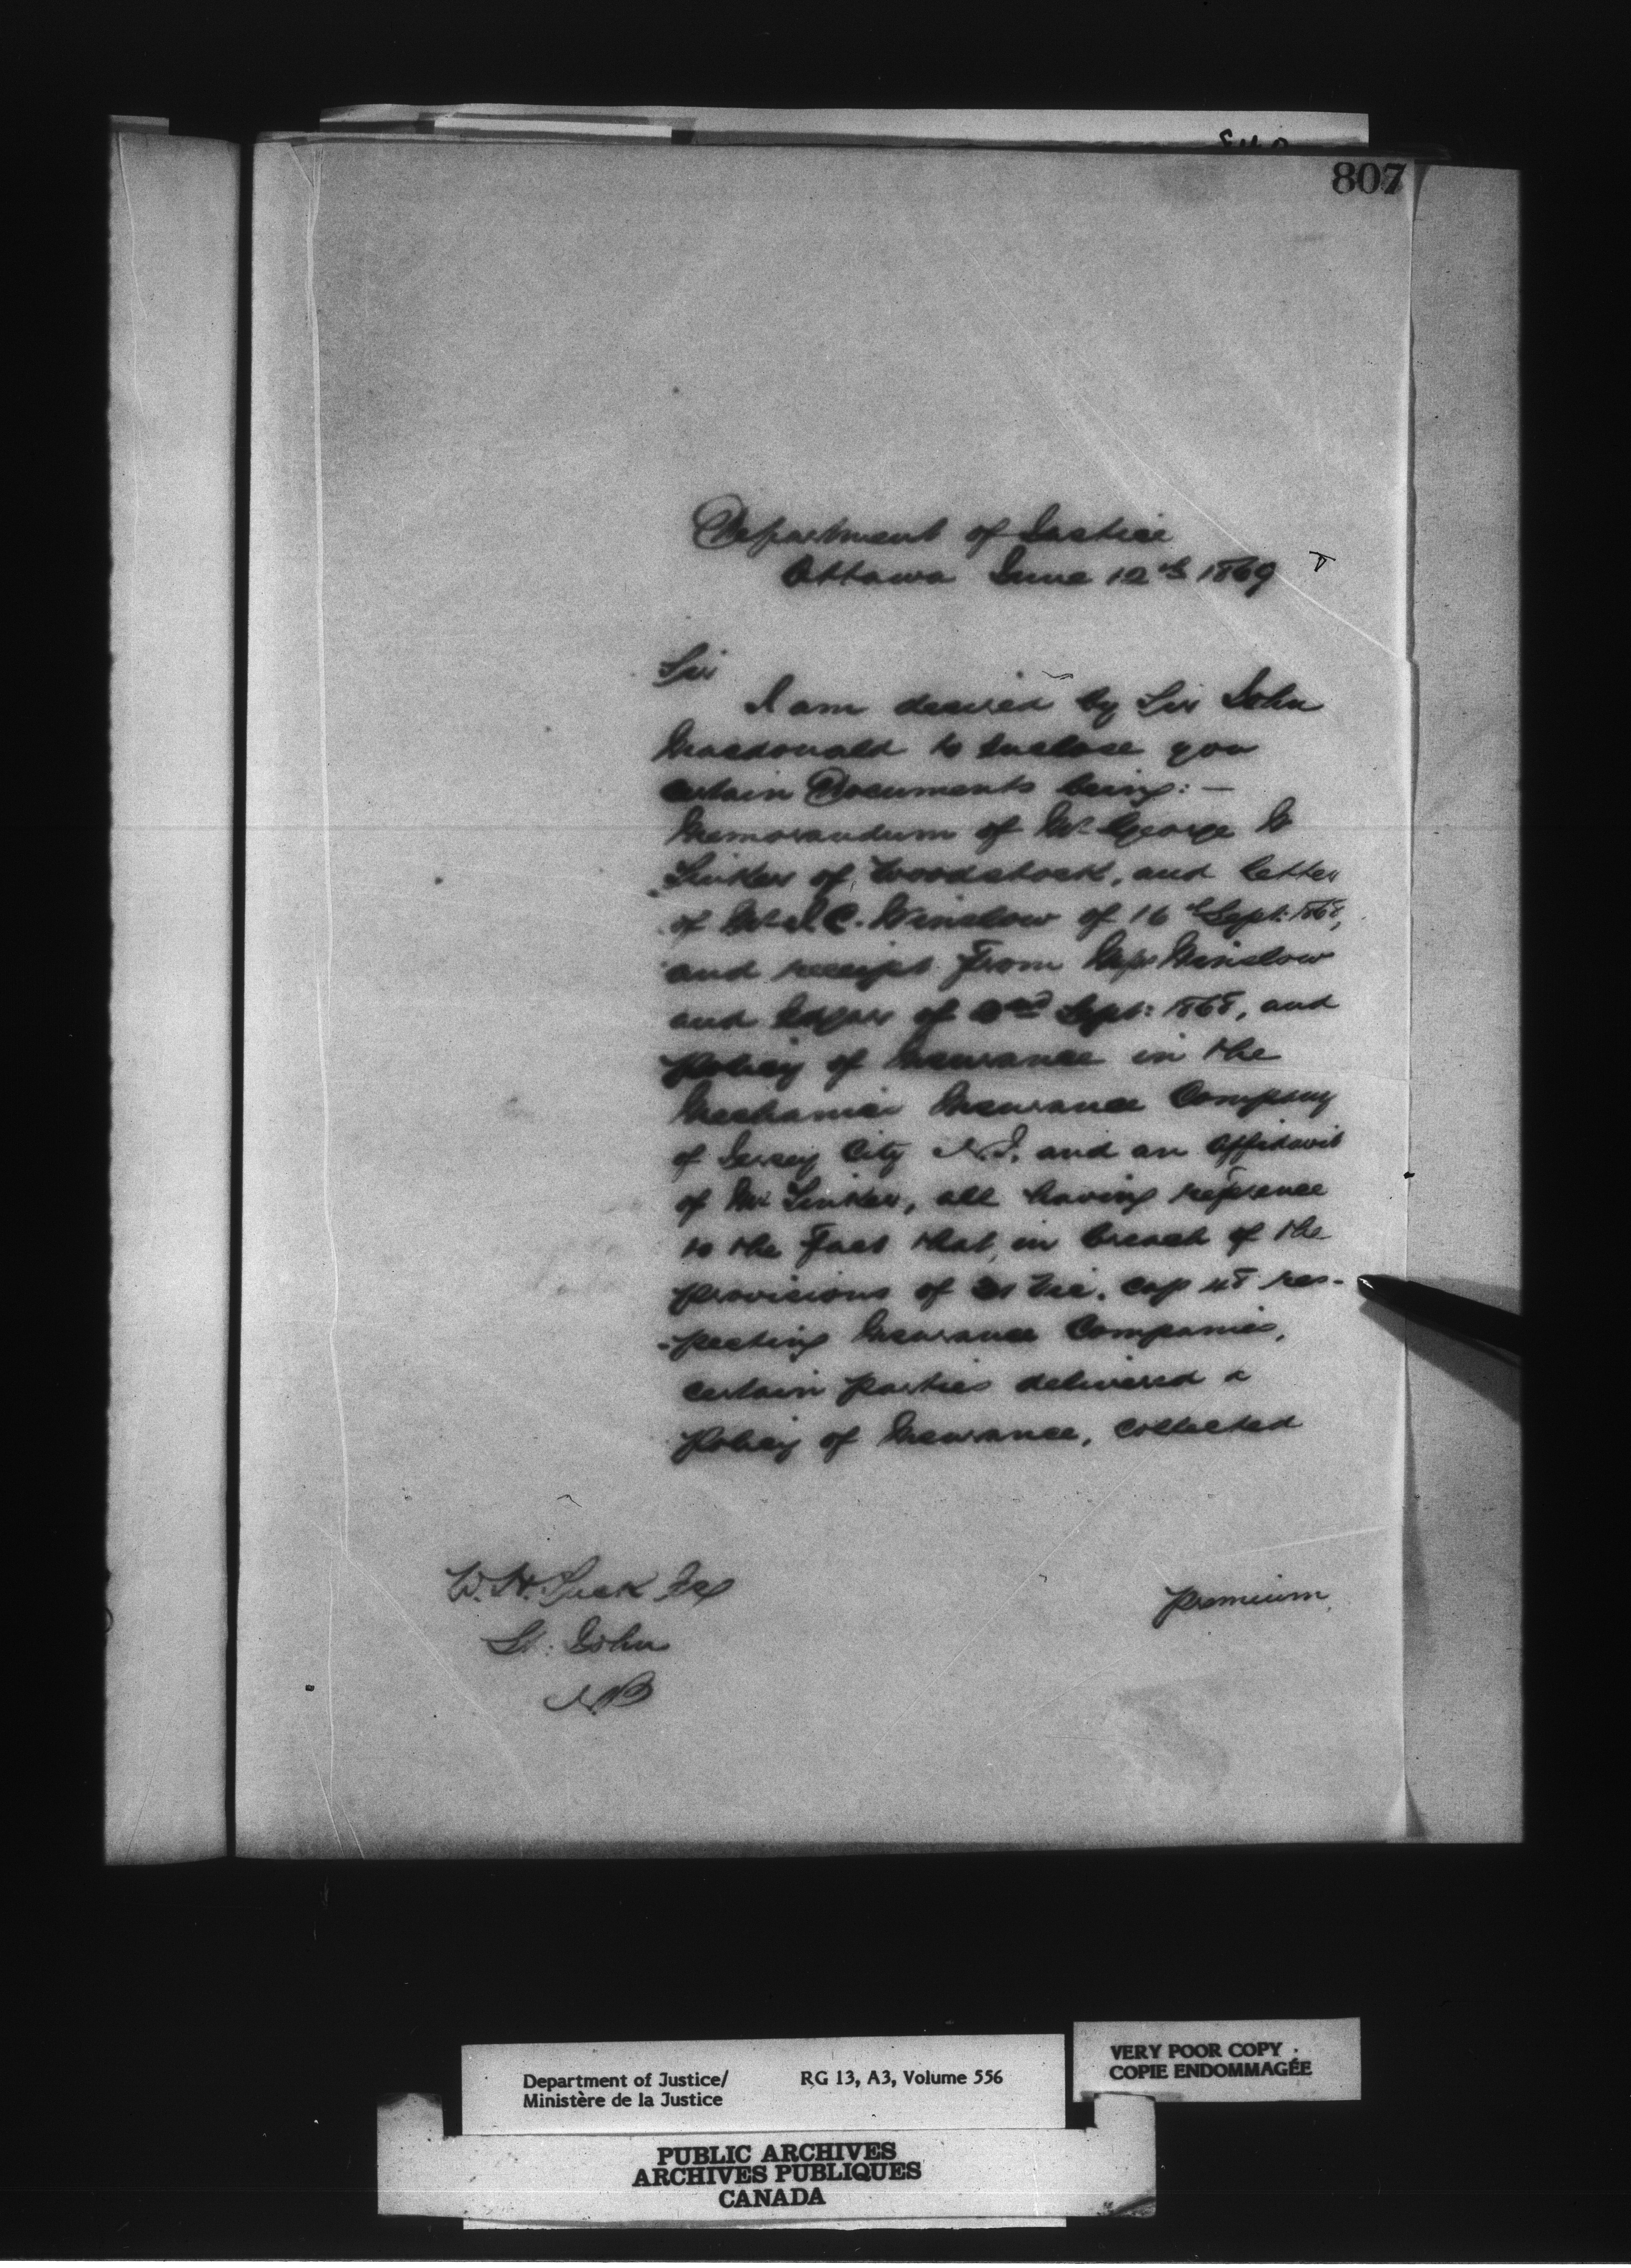 807
Department of Justice
Ottawa June 12th 1869
Sir
I am desired by Sir John
Macdonald to enclose you
certain Documents being:—
Memorandum of Mr George W
of Woodstock, and letter
of Mr J. C. Winslow of 16th Sept: 1868,
and receipt from Messrs Winslow
and of 2nd Sept: 1868, and
Policy of Insurance in the
Mechanics Insurance Company
of Jersey City N.J. and an Affidavit
of Mr all having reference
to the fact that, in breach of the
provisions of 31 Vic. cap 48 res-
-pecting Insurance Companies,
certain parties delivered a
Policy of Insurance, collected
premium
W. H. Tuck Esq
St. John
NB
Department of Justice/
Ministère de la Justice
RG 13, A3, Volume 556
VERY POOR COPY
COPIE ENDOMMAGÉE
PUBLIC ARCHIVES
ARCHIVES PUBLIQUES
CANADA